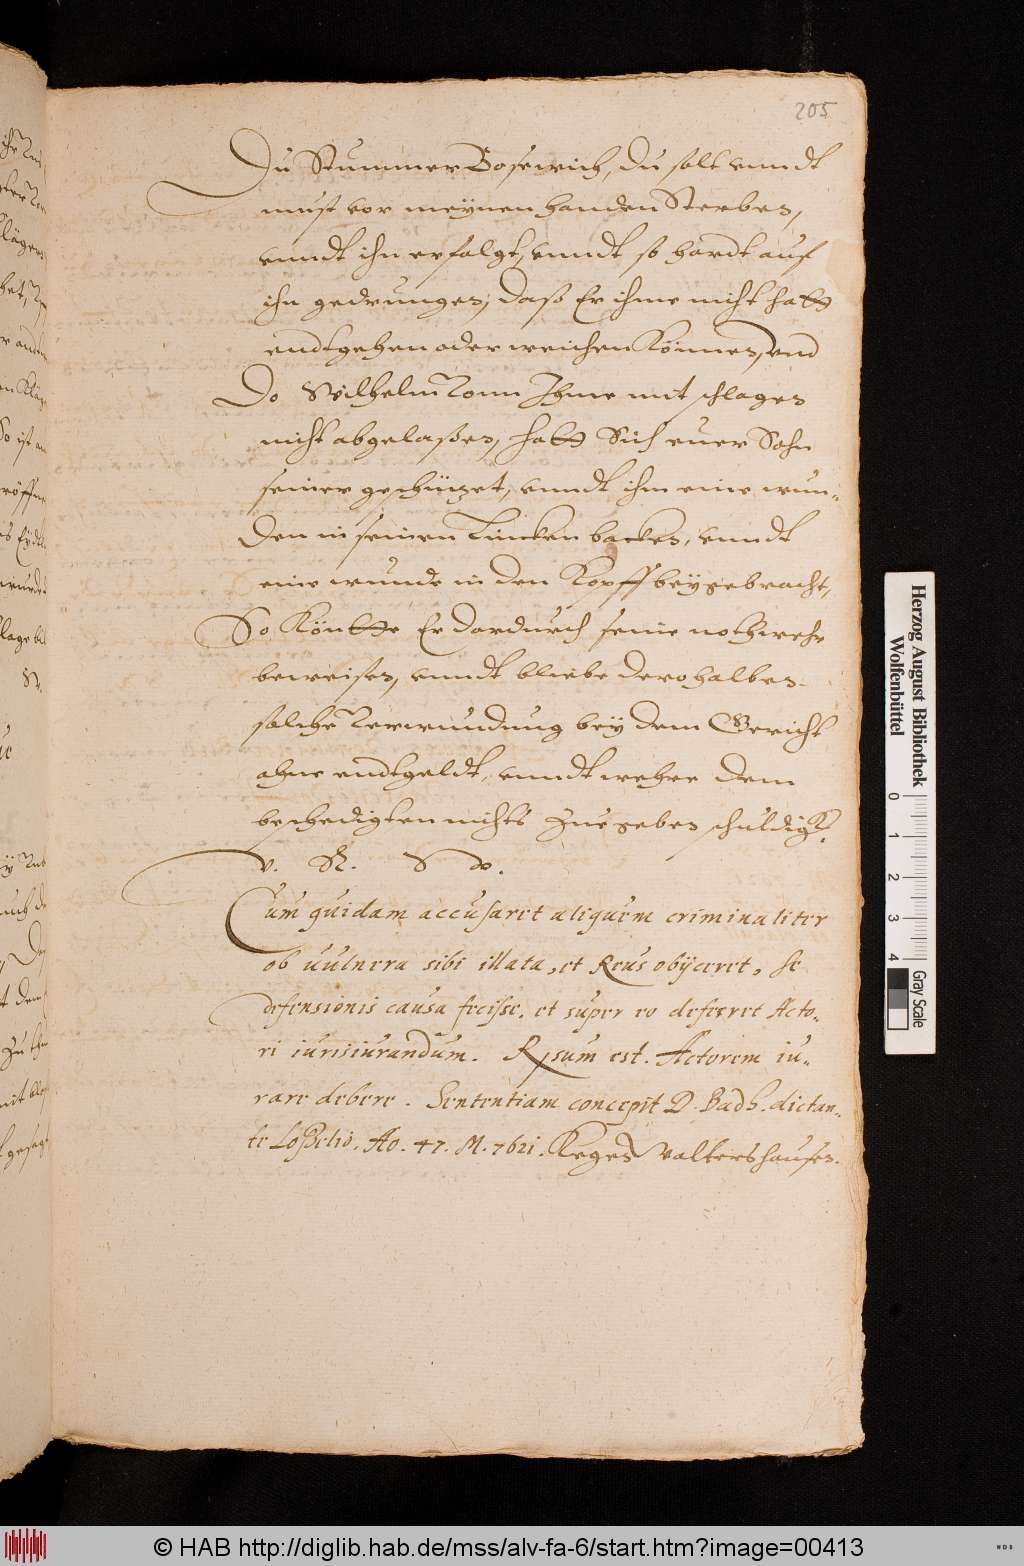 205
Du Stummer Bösewich, du solt vnndt
must vor meynen handen Sterben,
vnndt ihn erfolgt, vnndt so hardt auf
ihn gedrungen, daß Er ihme nicht hatt
endtgehen oder weichen Können, vnd
Do Wilhelm Vonn Ihme mit schlagen
nicht abgelaßen, hatt Sich euer Sohn
seiner geschüzet, vnndt ihm eine wun-
den in seinen Lincken backen, vnndt
eine wunde in den Kopff beygebracht,
So Köntte Er dardurch seine nothwehr
beweisen, vnndt bliebe derohalben
solche Verwundung bey dem Gericht
ohne endtgeldt, vnndt wehre dem
beschedigten nichts zue geben schuldigk.
v. R. w.
Cum quidam accusaret aliquem criminaliter
ob uulnera sibi illata, et Reus obijceret, se
defensionis causa fecisse, et super eo deferret Acto-
ri iurisiurandum. Rsum est. Actorem iu-
rare debere. Sententiam concepit D. Badh. dictan-
te Loßelio. Ao. 47. M. 7621. Keges Valtershausen.
Herzog August Bibliothek
Wolfenbüttel
0 1 2 3 4
Gray Scale
© HAB http://diglib.hab.de/mss/alv-fa-6/start.htm?image=00413